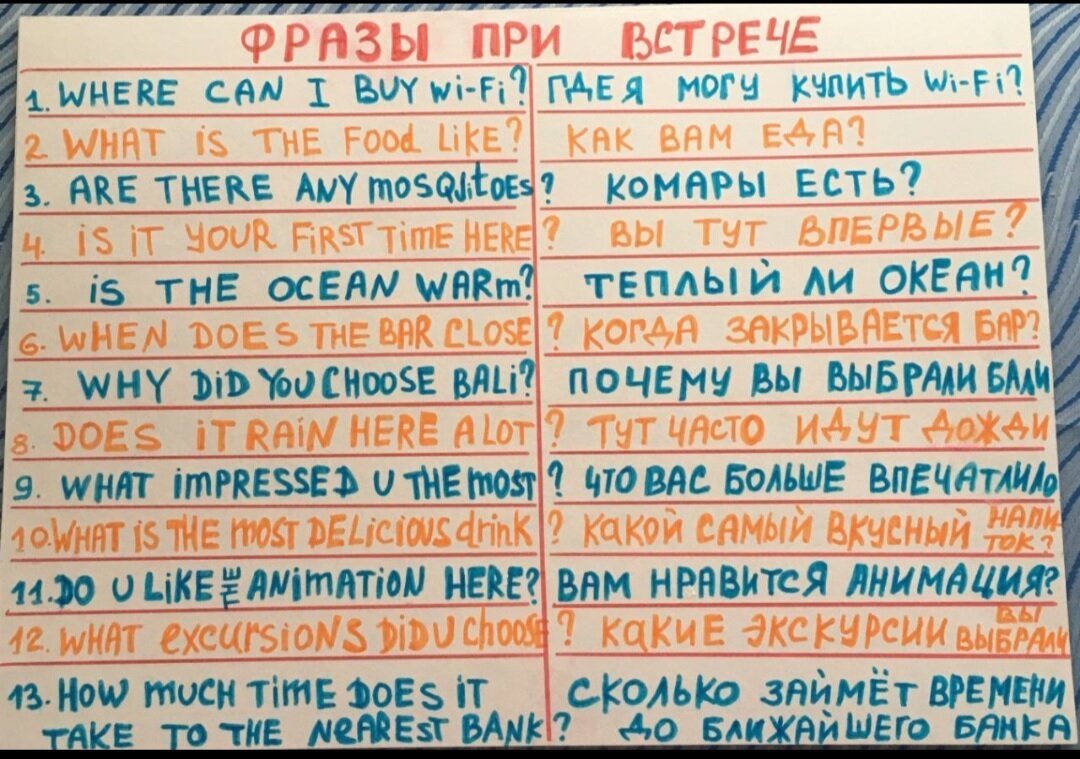 ФРАЗЫ ПРИ ВСТРЕЧЕ
1. WHERE CAN I BUY Wi-Fi? ГДЕ Я МОГУ КУПИТЬ Wi-Fi?
2 WHAT iS THE FOOd LiKE? КАК ВАМ ЕДА?
3. ARE THERE ANY mOSQUitOEs? КОМАРЫ ЕСТЬ?
4. iS iT YOUR FiRST TimE HERE? ВЫ ТУТ ВПЕРВЫЕ?
5. iS THE OCEAN WARm? ТЕПЛЫЙ ЛИ ОКЕАН?
6. WHEN DOES THE BAR CLOSE? КОГДА ЗАКРЫВАЕТСЯ БАР?
7. WHY DiD YOU CHOOSE BALi? ПОЧЕМУ ВЫ ВЫБРАЛИ БАЛИ
8. DOES iT RAiN HERE A LOT? ТУТ ЧАСТО ИДУТ ДОЖДИ
9. WHAT imPRESSED U THE mOST? ЧТО ВАС БОЛЬШЕ ВПЕЧАТЛИЛО
10. WHAT iS THE mOST DELiCiOUS drink? КАКОЙ САМЫЙ ВКУСНЫЙ НАПИ-
ТОК?
11. DO U LiKE THE ANimATiON HERE? ВАМ НРАВИТСЯ АНИМАЦИЯ?
12. WHAT excursiONS DiD U Choose? КАКИЕ ЭКСКУРСИИ ВЫ
ВЫБРАЛИ
13. HOW mUCH TimE DOES iT СКОЛЬКО ЗАЙМЁТ ВРЕМЕНИ
TAKE TO THE NeAREST BANK? ДО БЛИЖАЙШЕГО БАНКА